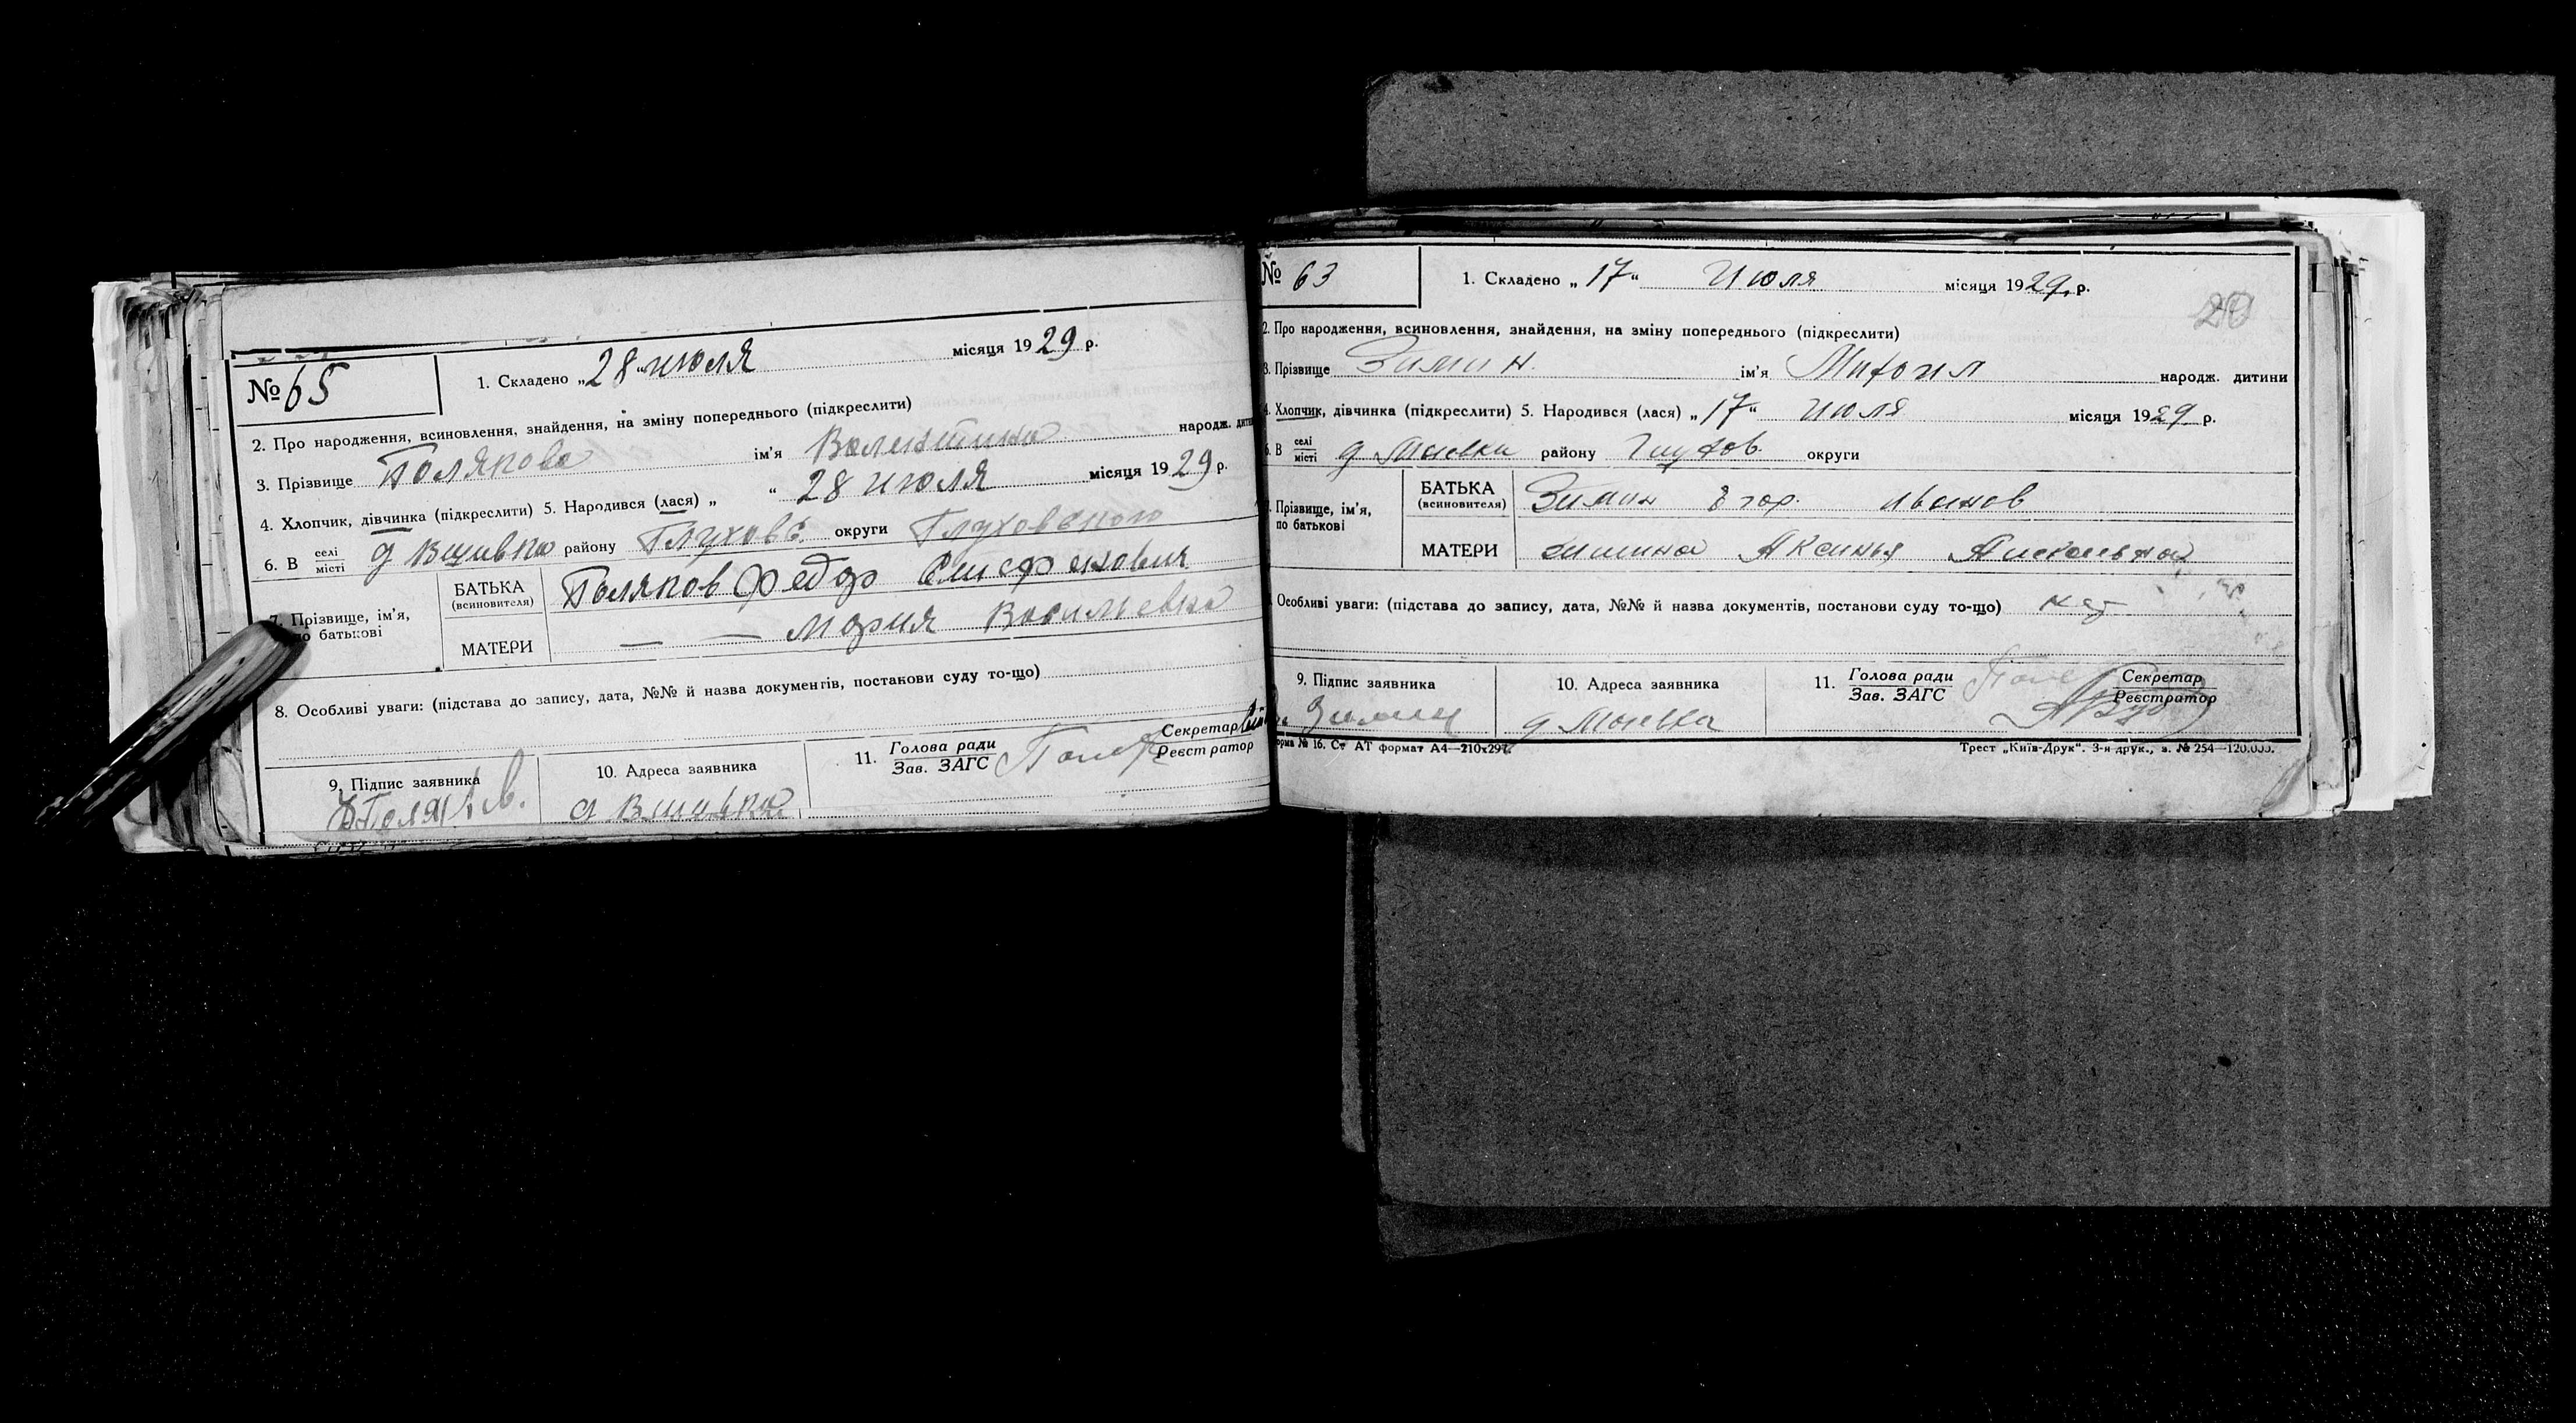 № 65
1. Складено „28“ июля місяця 1929 р.
2. Про народження, всиновлення, знайдення, на зміну попереднього (підкреслити)
3. Прізвище Полякова ім'я Валентина народж. дити
4. Хлопчик, дівчинка (підкреслити) 5. Народився (лася) „ “ 28 июля місяця 1929 р.
6. В селі місті д району Глуховс. округи Глуховского
7. Прізвище, ім'я, по батькові
БАТЬКА (всиновителя) Поляков Федор
МАТЕРИ — — Мария Васильевна
8. Особливі уваги: (підстава до запису, дата, №№ й назва документів, постанови суду то-що)
9. Підпис заявника
10. Адреса заявника д
11. Голова ради Зав. ЗАГС
Секретар Реєстратор
№ 63
1. Складено „17“ Июля місяця 1929 р.
20
2. Про народження, всиновлення, знайдення, на зміну попереднього (підкреслити)
3. Прізвище Зимин ім'я Михоил народж. дитини
4. Хлопчик, дівчинка (підкреслити) 5. Народився (лася) „17“ июля місяця 1929 р.
6. В селі місті д району Глухов. округи
Прізвище, ім'я, по батькові
БАТЬКА (всиновителя) Зимин Егор. Иванов
МАТЕРИ зимина Аксинья
Особливі уваги: (підстава до запису, дата, №№ й назва документів, постанови суду то-що) нет
9. Підпис заявника Зимин
10. Адреса заявника д
11. Голова ради Зав. ЗАГС
Секретар Реєстратор
орма № 16. Ст АТ формат А4—210x297.
Трест „Київ-Друк“. 3-я друк., з. № 254—120.000.